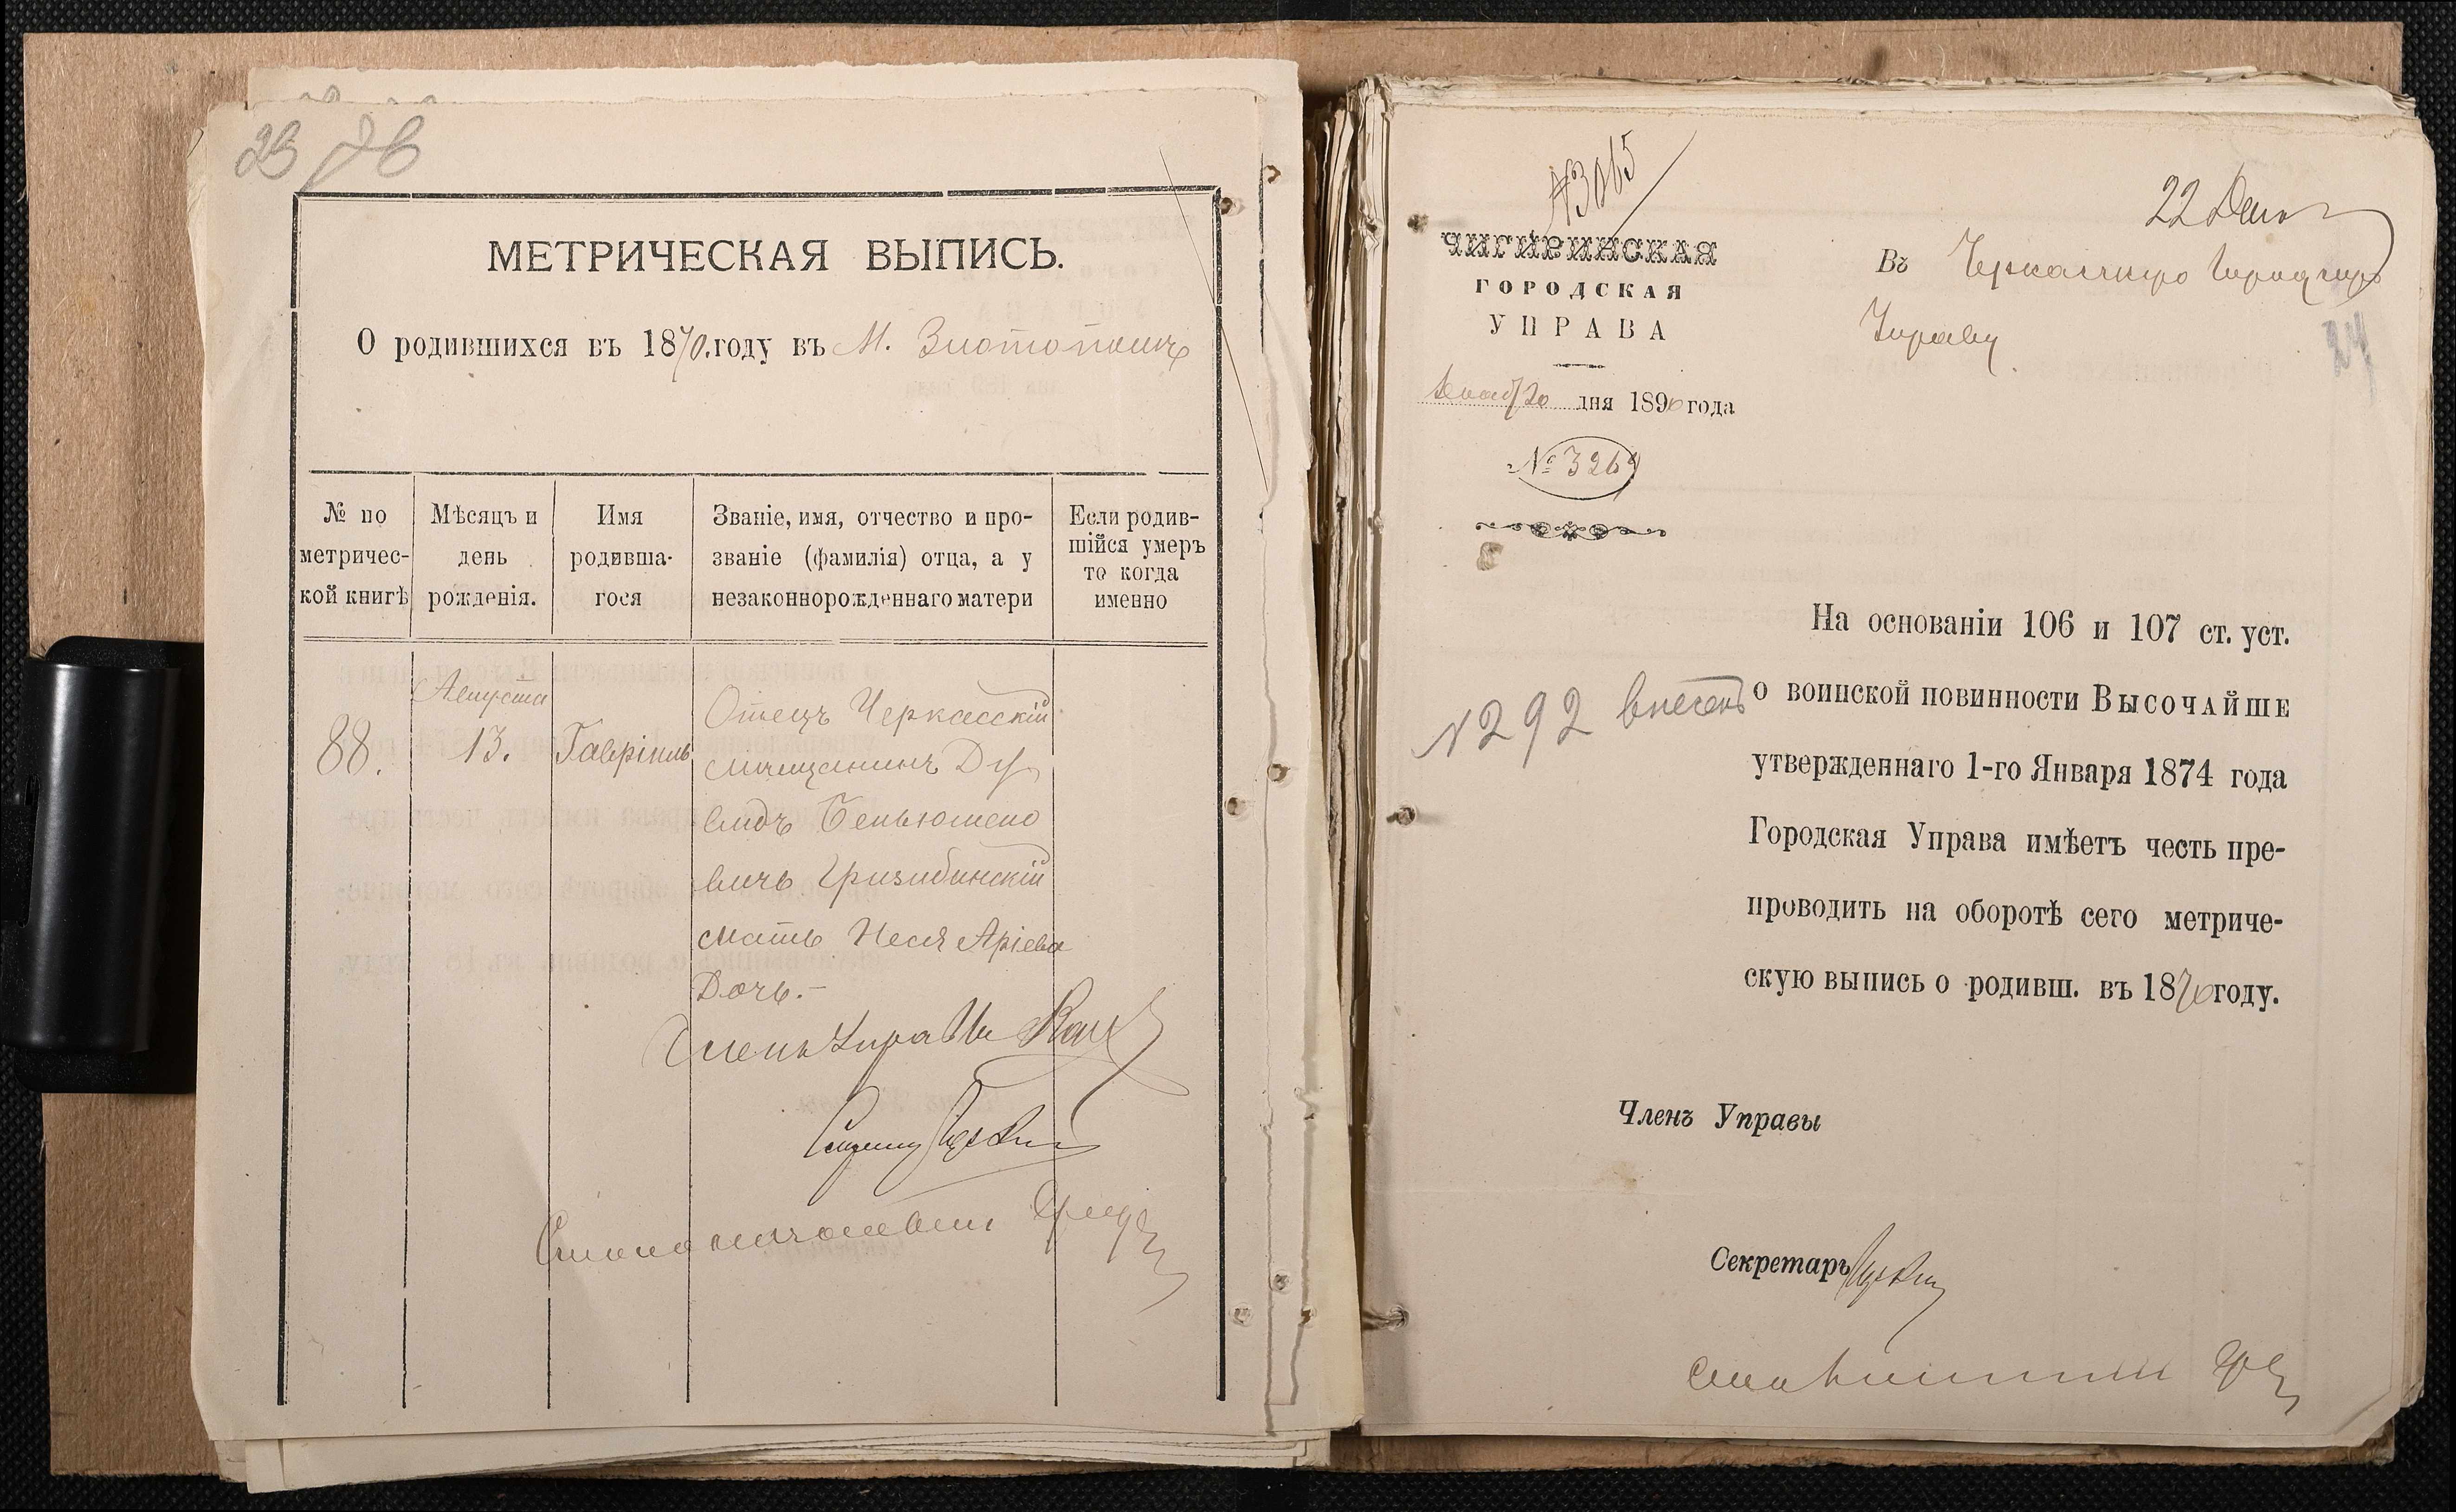 МЕТРИЧЕСКАЯ ВЫПИСЬ.
О родившихся въ 1870. году въ М. Златополѣ
№ по метричес-кой книгѣ
Мѣсяцъ и день рожденія.
Имя родивша-гося
Званіе, имя, отчество и про-
званіе (фамилія) отца, а у
незаконнорожденнаго матери
Если родив-
шійся умеръ
то когда
именно
88.
Августа
13.
Гавріиль
Отецъ Черкасскій
мѣщанинъ Ду
видъ Беньюмено
вичъ Гризибинскій
мать Неся Аріева
Дочь.-
Членъ Управы
№3065
ЧИГИРИНСКАЯ
ГОРОДСКАЯ
УПРАВА
Декаб 20 дня 1890 года
№ 3269
22 Дек
Въ Черкасскую Городскую
Управу
24
№ 292 внесенъ
На основаніи 106 и 107 ст. уст.
о воинской повинности ВЫСОЧАЙШЕ
утвержденнаго 1-го Января 1874 года
Городская Управа имѣетъ честь пре-
проводить на оборотѣ сего метриче-
скую выпись о родивш. въ 1870 году.
Членъ Управы
Секретарь